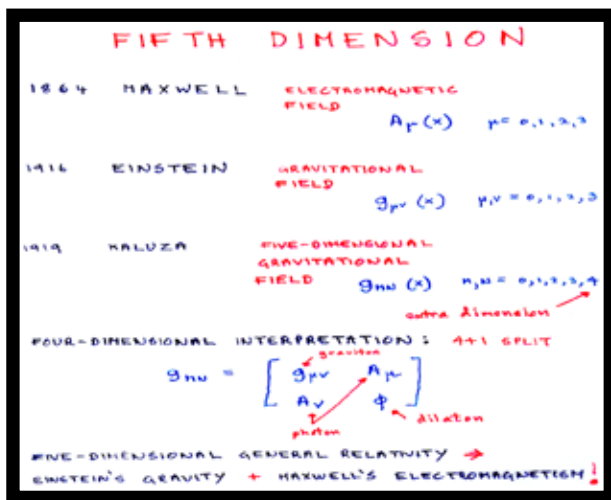 FIFTH DIMENSION
1864 MAXWELL ELECTROMAGNETIC
FIELD
Aμ(x) μ= 0,1,2,3
1916 EINSTEIN GRAVITATIONAL
FIELD
gμν(x) μ,ν = 0,1,2,3
1919 KALUZA FIVE-DIMENSIONAL
GRAVITATIONAL
FIELD gMN(x) M,N = 0,1,2,3,4
extra dimension
FOUR-DIMENSIONAL INTERPRETATION: 4+1 SPLIT
graviton
gMN = [ gμν Aμ
Aν φ ]
photon dilaton
FIVE-DIMENSIONAL GENERAL RELATIVITY →
EINSTEIN'S GRAVITY + MAXWELL'S ELECTROMAGNETISM!